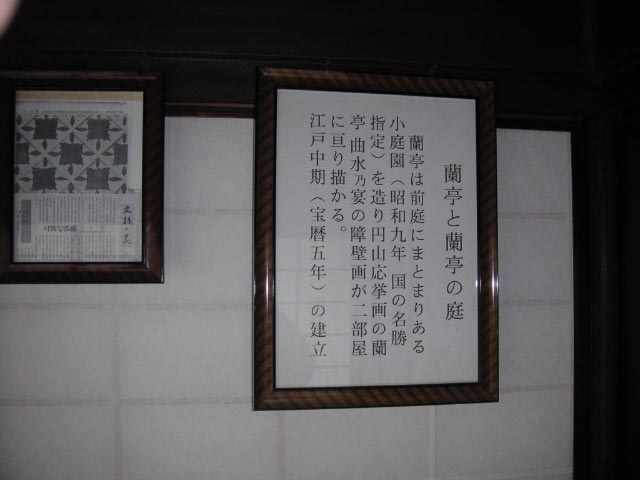 蘭亭と蘭亭の庭
蘭亭は前庭にまとまりある
小庭園（昭和九年 国の名勝
指定）を造り円山応挙画の蘭
亭 曲水乃宴の障壁画が二部屋
に亘り描かる。
江戸中期（宝暦五年）の建立
文様の美